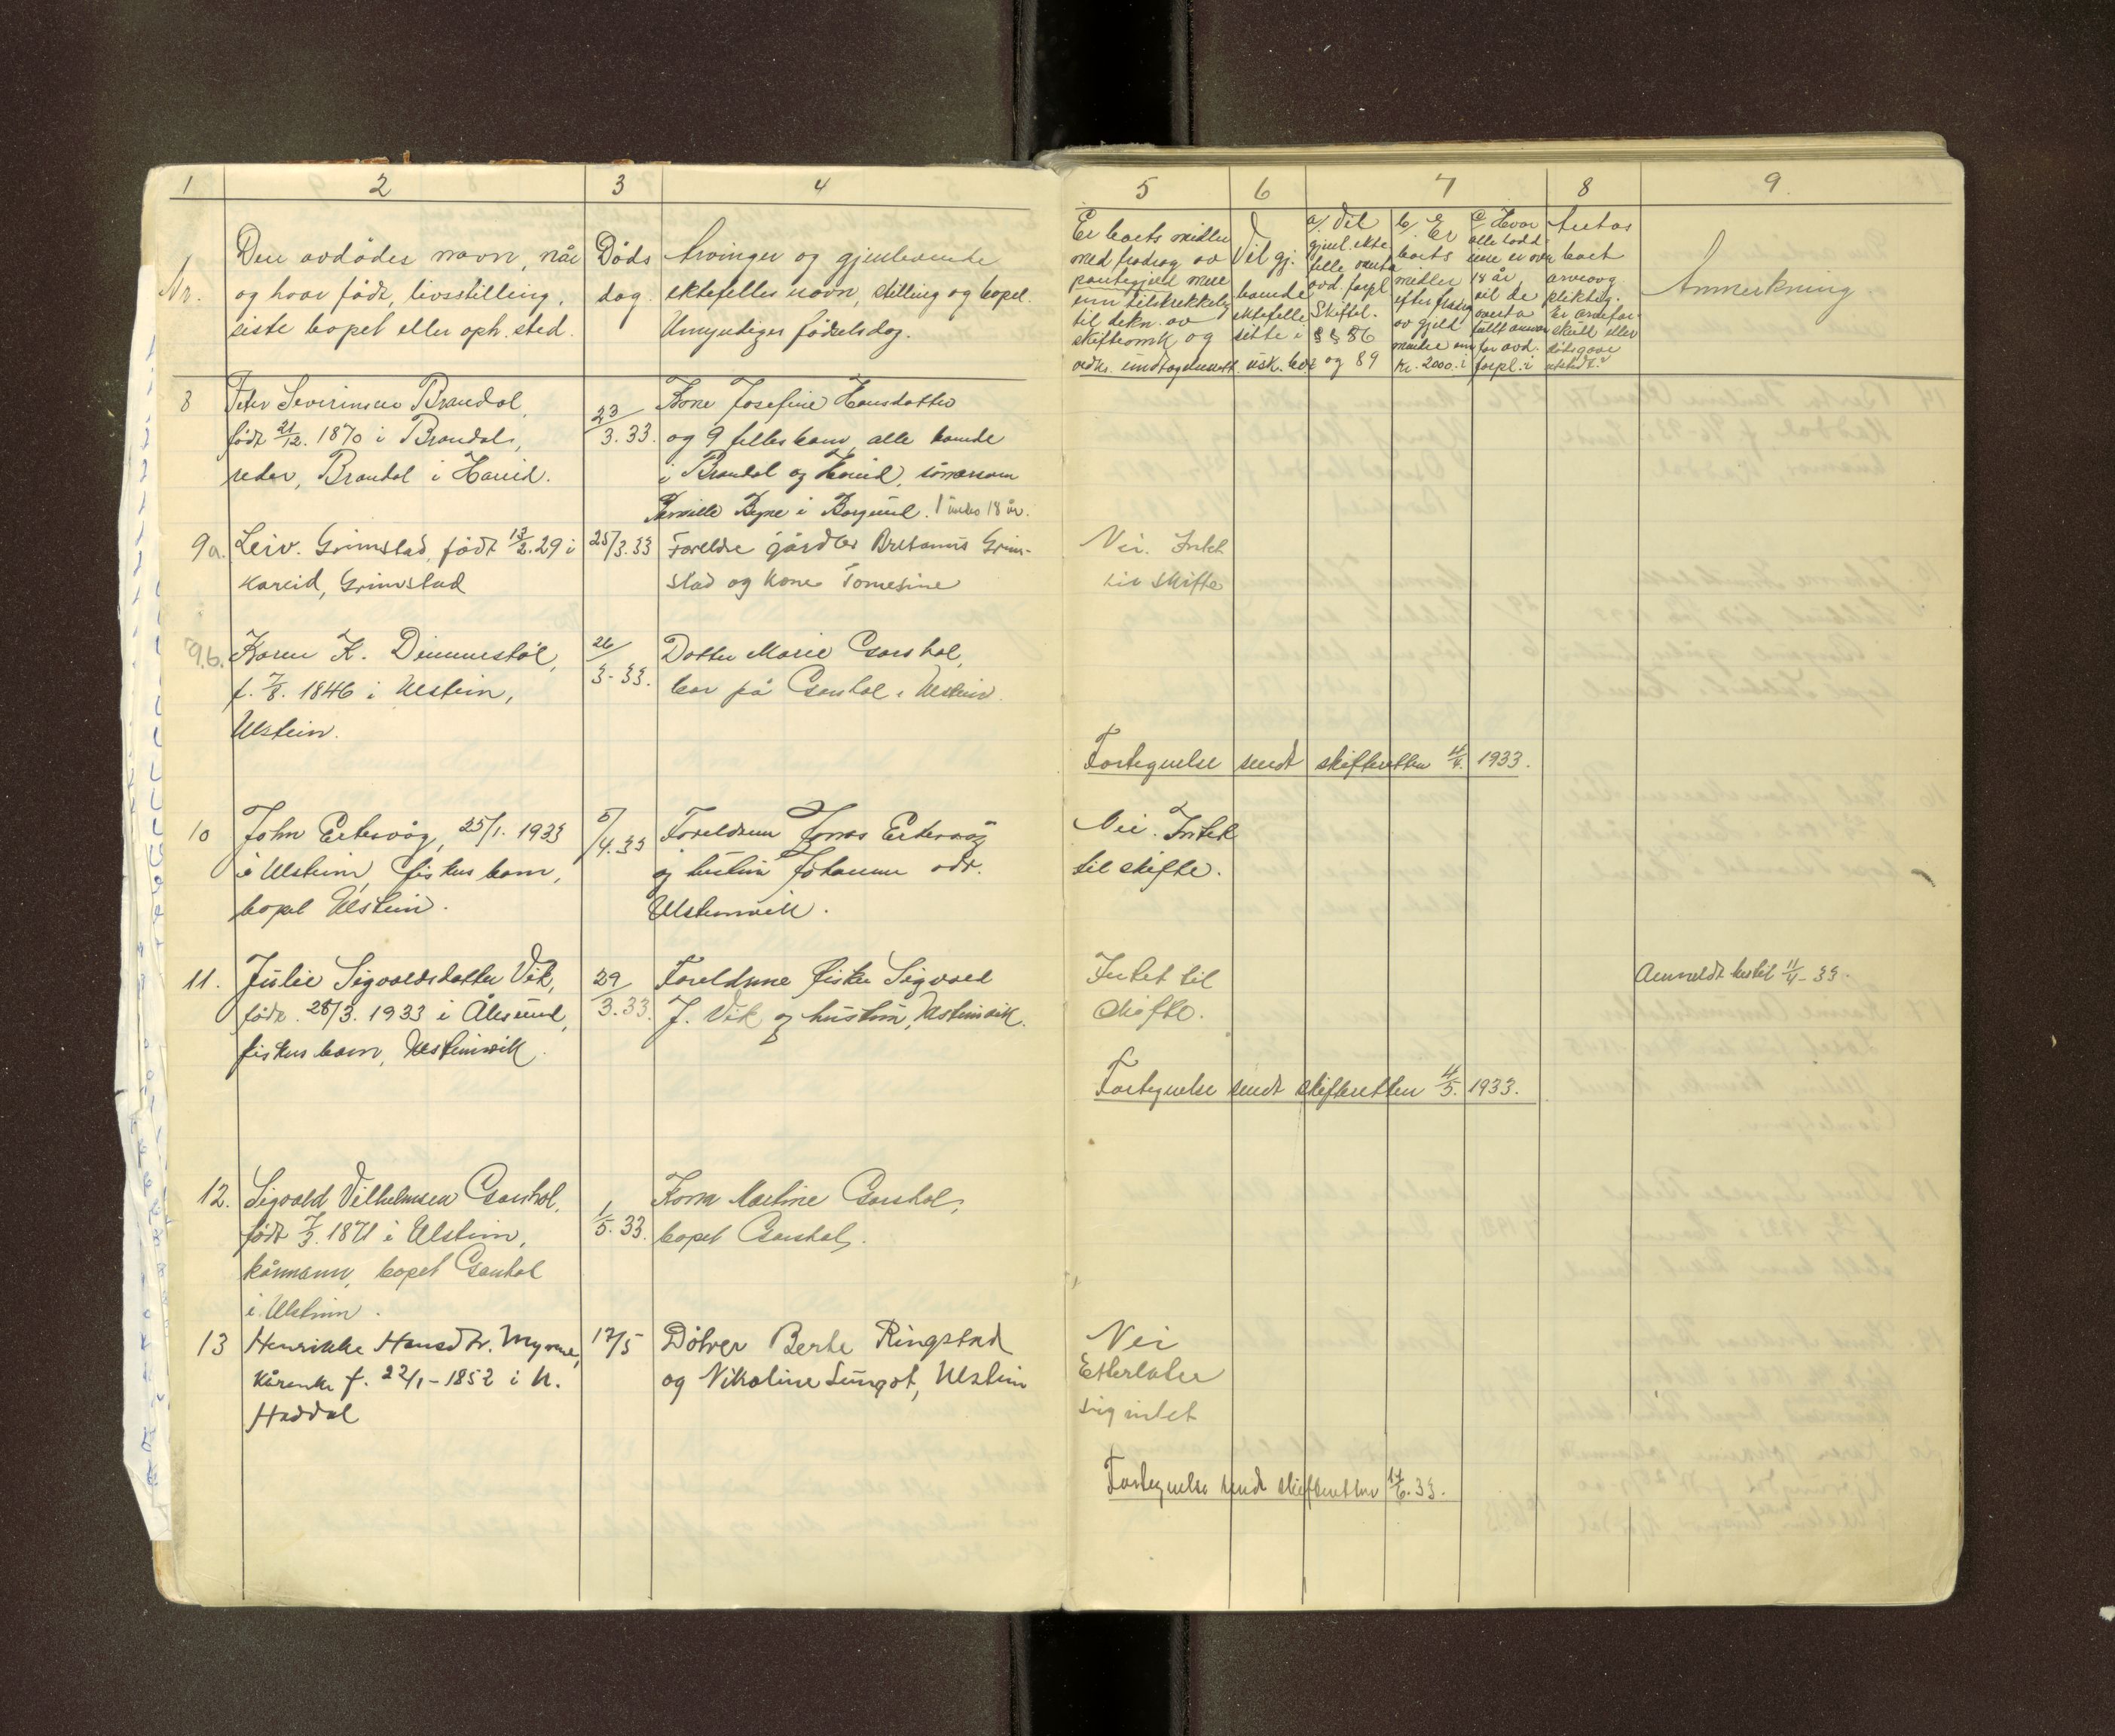 1 2 3 4 5 6 7 8 9
Nr.
Den avdødes navn, når
og hvor født, livsstilling,
siste bopel eller oph. sted.
Døds
dag.
Arvinger og gjenlevende
ektefelles navn, stilling og bopel.
Umyndiges fødselsdag.
Er boets midler
med fradrag av
pantegjeld mere
enn tilstrekkelig
til dekn. av
skifteomk og
Vil gj.
levende
ektefelle
sitte i
usk. bo?
a/. Vil
gjenl. ekte
felle overta
avd. forpl
Skiftel.
§§ 86
og 89
b/. Er
boets
midler
efter fradrag
av gjeld
mindre enn
kr. 2000.
c/ Hvor
alle lodd.
ene er over
18 år,
vil de
overta
fullt ansvar
for avd.
forpl.
Antas
boet
arveavg
pliktig.
Er arvefor
skudd eller
dødsgave
utstedt?
Anmerkning
8
Peter Severinsen Brandal,
født 21/12. 1870 i Brandal,
reder, Brandal i Hareid.
23/3. 33.
Kone Josefine Hansdatter
og 9 felles barn, alle boende
i Brandal og Hareid, unntatt
i Borgund. 1 under 18 år.
9a.
Leiv. Grimstad, født 13/2. 29 i
Hareid, Grimstad
25/3. 33
Foreldre gårdbr Bretanus Grim-
stad og kone Tomesine
Nei. Intet
til skifte
9.b.
Karen K. Dimmestøl,
f. 7/8. 1846 i Ulstein,
Ulstein.
26/3- 33.
Datter Marie Garshol,
bor på Garshol i Ulstein.
Fortegnelse sendt skifteretten 4/4. 1933.
10
John Eiteraåg, 25/1. 1933
i Ulstein, fiskerbarn,
bopel Ulstein.
5/4. 33
Foreldrene Jonas Eiteraåg
og hustru Johanne adr.
Ulsteinvik.
Nei. Intet
til skifte.
11.
Julie Sigvaldsdatter Vik,
født 28/3. 1933 i Ålesund,
fiskerbarn, Ulsteinvik.
29/3. 33.
Foreldrene fisker Sigvald
J. Vik og hustru, Ulsteinvik.
Intet til
skifte.
Anmeldt hertil 11/4- 33.
Fortegnelse sendt skifteretten 4/5. 1933.
12.
Sigvald Vilhelmsen Garshol,
født 7/3. 1871 i Ulstein,
kårmann, bopel Garshol
i Ulstein.
1/5. 33.
Kona Martine Garshol,
bopel Garshol.
13
Henrikke Hansdtr. Myrene,
kårenke f. 22/1-1852 i U.
Haddal
17/5
Døtrer Berte Ringstad
og Nikoline Sungot, Ulstein
Nei
Etterlater
sig intet
Fortegnelse sendt skifteretten 17/6. 33.